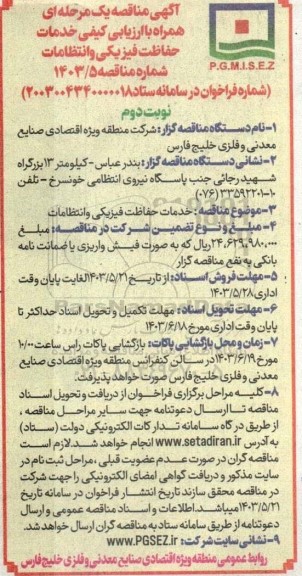 آگهی مناقصه یک مرحله ای
همراه با ارزیابی کیفی خدمات
حفاظت فیزیکی و انتظامات
شماره مناقصه ۱۴۰۳/۵
P.G.M.I.S.E.Z
(شماره فراخوان در سامانه ستاد ۲۰۰۳۰۰۴۳۴۰۰۰۰۰۱۸)
نوبت دوم
۱- نام دستگاه مناقصه گزار: شرکت منطقه ویژه اقتصادی صنایع
معدنی و فلزی خلیج فارس
۲- نشانی دستگاه مناقصه گزار: بندر عباس- کیلومتر ۱۳ بزرگراه
شهید رجائی جنب پاسگاه نیروی انتظامی خونسرخ - تلفن
۱-۳۳۵۹۲۲۰ (۰۷۶)
۳- موضوع مناقصه: خدمات حفاظت فیزیکی و انتظامات
۴- مبلغ و نوع تضمین شرکت در مناقصه: مبلغ
۲۴.۶۲۹.۹۸۰.۰۰۰ ریال که به صورت فیش واریزی یا ضمانت نامه
بانکی به نفع مناقصه گزار
۵- مهلت فروش اسناد: از تاریخ ۱۴۰۳/۵/۲۱ لغایت پایان وقت
اداری ۱۴۰۳/۵/۲۸
۶- مهلت تحویل اسناد: مهلت تکمیل و تحویل اسناد حداکثر تا
پایان وقت اداری مورخ ۱۴۰۳/۶/۱۸
۷- زمان و محل بازگشایی پاکات: بازگشایی پاکات راس ساعت ۱۰/۰۰
مورخ ۱۴۰۳/۶/۱۹ در سالن کنفرانس منطقه ویژه اقتصادی صنایع
معدنی و فلزی خلیج فارس صورت خواهد پذیرفت.
۸- کلیه مراحل برگزاری فراخوان از دریافت و تحویل اسناد
مناقصه تا ارسال دعوتنامه جهت سایر مراحل مناقصه ،
از طریق درگاه سامانه تدارکات الکترونیکی دولت (ستاد)
به آدرس www.setadiran.ir انجام خواهد شد. لازم است
مناقصه گران در صورت عدم عضویت قبلی ، مراحل ثبت نام در
سایت مذکور و دریافت گواهی امضای الکترونیکی را جهت شرکت
در مناقصه محقق سازند تاریخ انتشار فراخوان در سامانه تاریخ
۱۴۰۳/۵/۲۱ میباشد. اطلاعات و اسناد مناقصه عمومی و ارسال
دعوتنامه از طریق سامانه ستاد به مناقصه گران ارسال خواهد شد.
۹- نشانی سایت شرکت: www.PGSEZ.ir
روابط عمومی منطقه ویژه اقتصادی صنایع معدنی و فلزی خلیج فارس